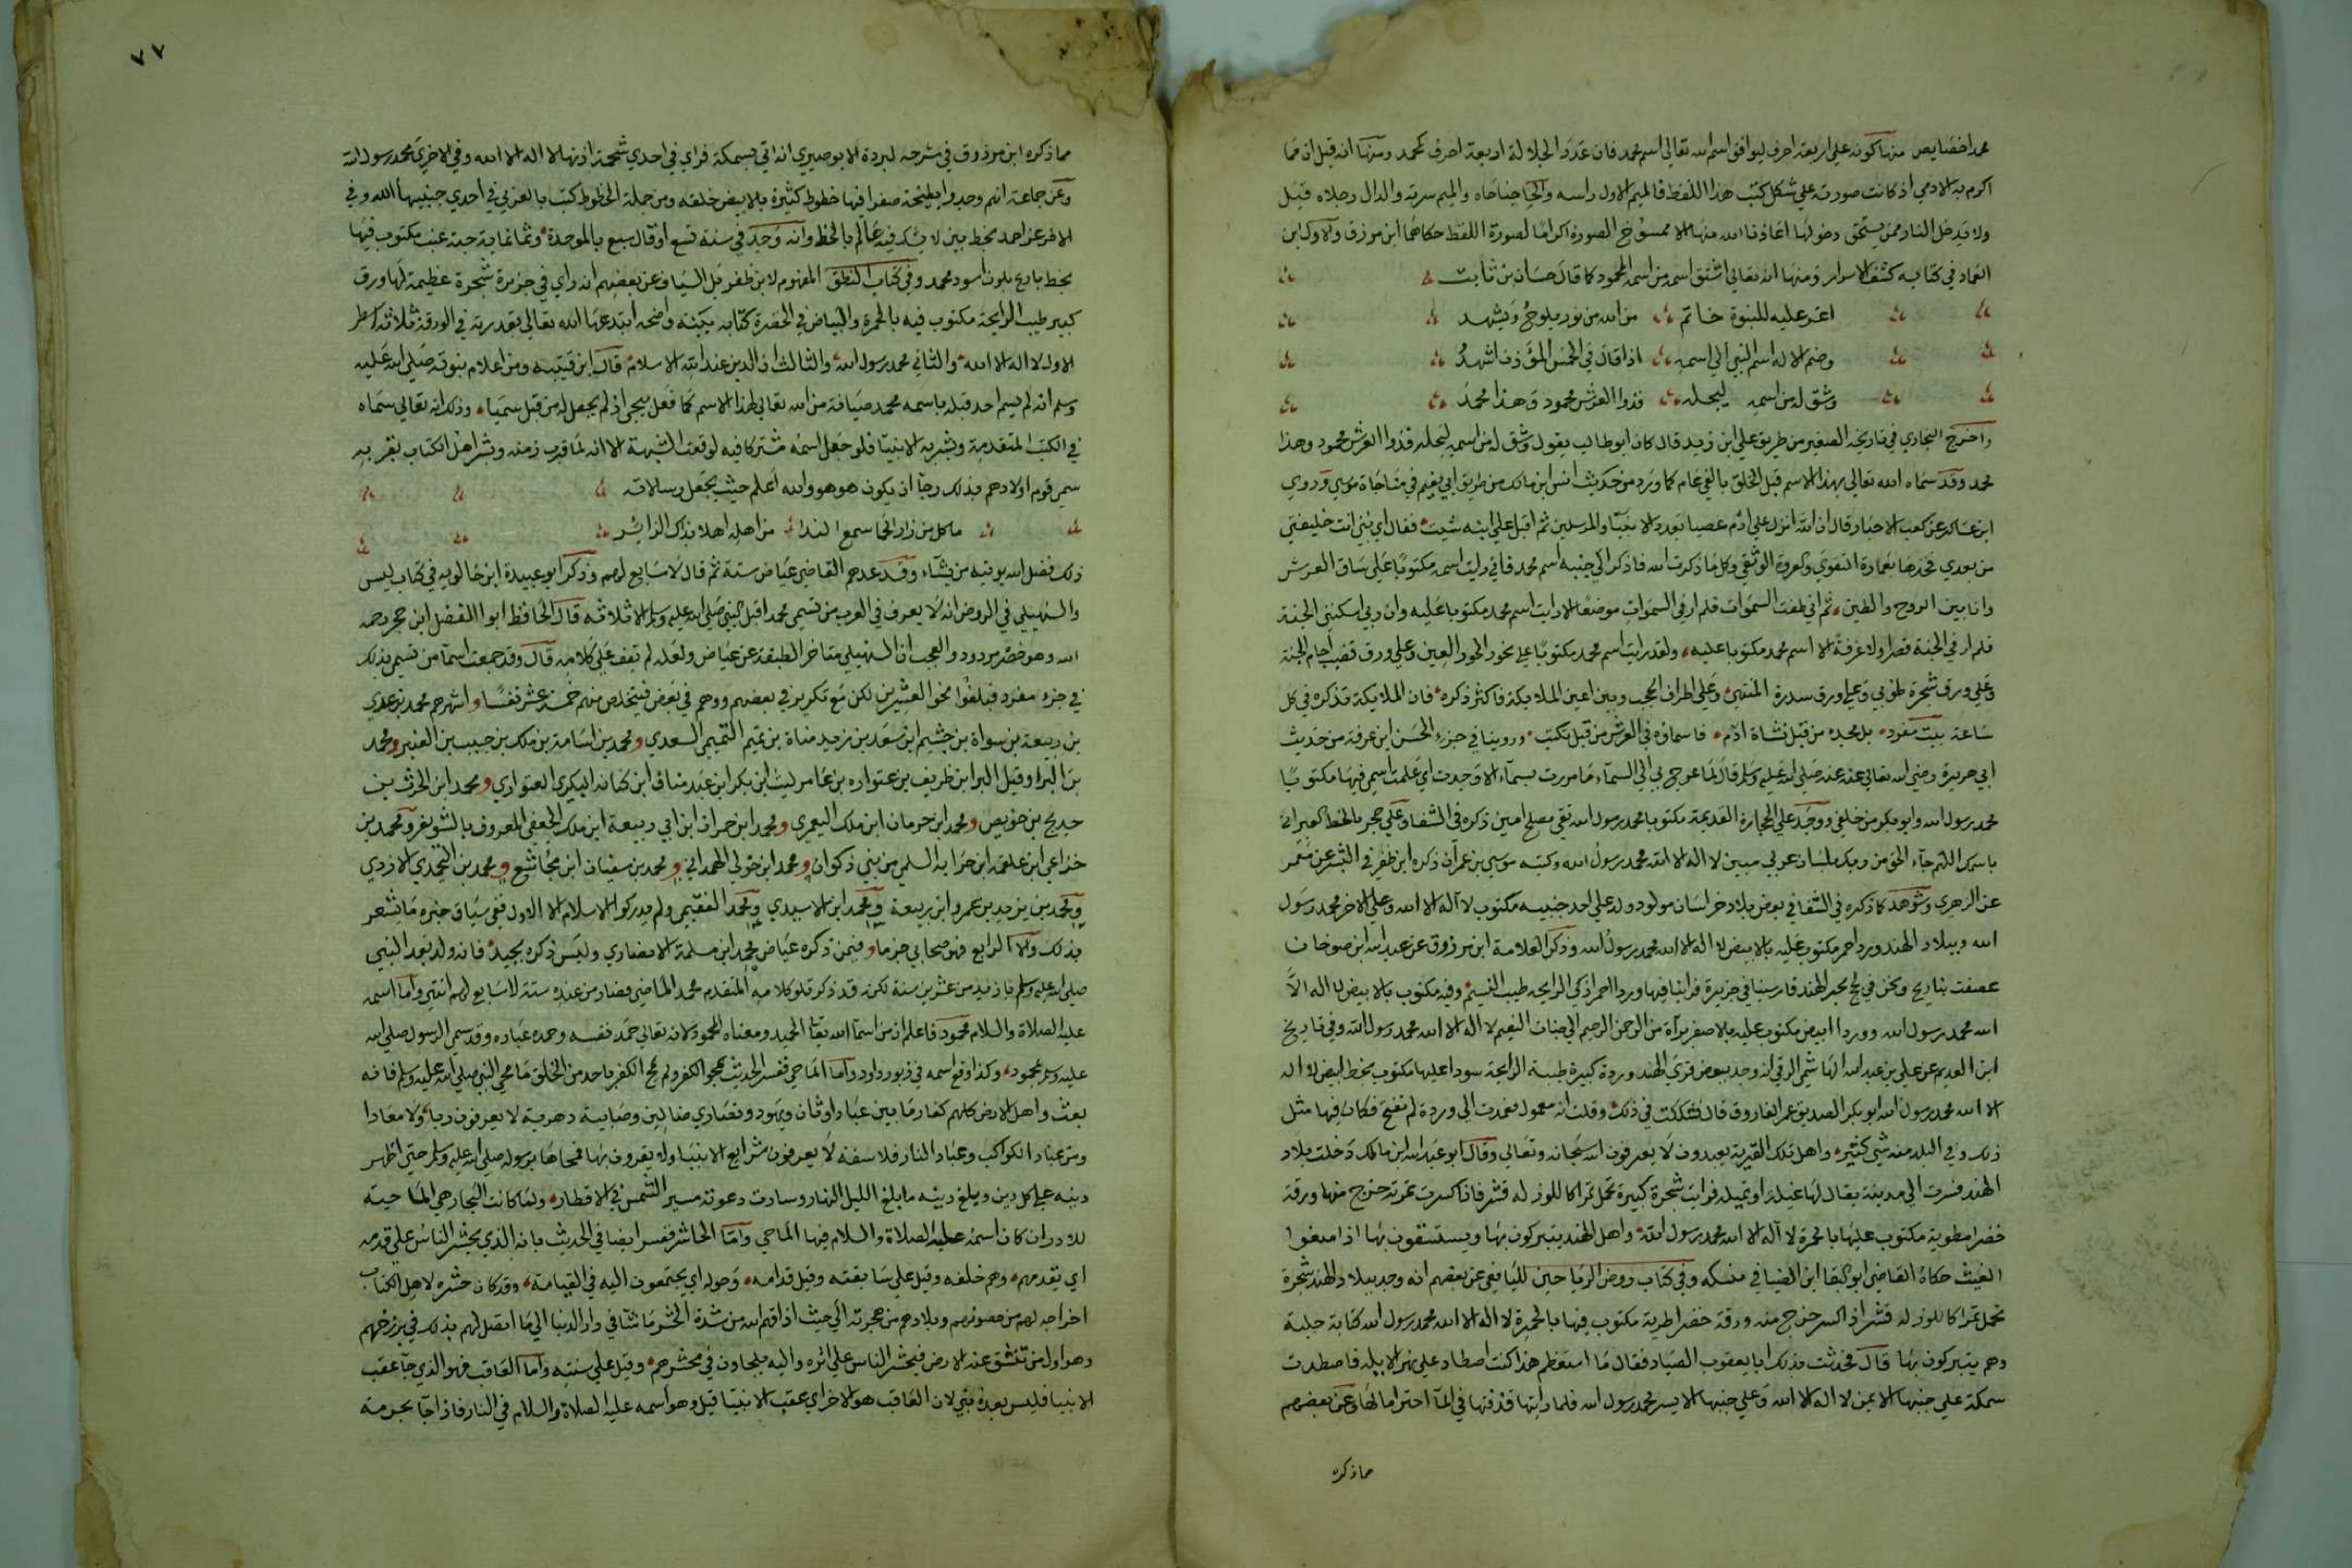 محمد اخصايص منها كونه علي اربعة احرف ليوافق اسم الله تعالي اسم محمد فان عدد الجلالة اربعة احرف كمحمد ومنها انه قيل ان مما
اكرم به الادمي ان كانت صورته علي شكل كتب هذا اللفظ فالميم الاول راسه والحا جناحاه والميم سرته والدال رجلاه قيل
ولا يدخل النار ممن يستحق دخولها اعاذنا الله منها الا ممسوخ الصورة اكراما لصورة اللفظ حكاهما ابن مرزق والاول ابن
العماد في كتابه كشف الاسرار ومنها ان الله تعالي اشتق اسمه من اسمه المحمود كما قال حسان بن ثابت
اغر عليه للنبوة خاتم من الله من نور يلوح ويشهد
وضم الاله اسم النبي الي اسمه اذا قال في الخمس الموذن اشهد
وشق له من اسمه ليجله فذوا العرش محمود وهذا محمد
واخرج البخاري في تاريخه الصغير من طريق علي ابن زيد قال كان ابوطالب يقول وشق له من اسمه ليجله فذوا العرش محمود وهذا
محمد وقد سماه الله تعالي بهذا الاسم قبل الخلق بالفي عام كما ورد من حديث انس ابن مالك من طريق ابي نعيم في مناجاة موسي وروي
ابن عساكر عن كعب الاحبار قال ان الله انزل علي ادم عصيا بعدد الانبيا والمرسلين ثم اقبل علي ابنه شيث فقال اي بني انت خليفتي
من بعدي فخذها بعمارة التقوي والعروة الوثقي وكل ما ذكرت الله فاذكر الي جنبه اسم محمد فاني رايت اسمه مكتوبا علي ساق العرش
وانا بين الروح والطين ثم اني طفت السموات فلم ار في السموات موضعا الا رايت اسم محمد مكتوبا عليه وان ربي اسكنني الجنة
فلم ار في الجنة قصرا ولا غرفة الا اسم محمد مكتوبا عليه ولقد رايت اسم محمد مكتوبا علي نحور الحور العين وعلي ورق قصب اجام الجنة
وعلي ورق شجرة طوبي وعلي ورق سدرة المنتهي وعلي اطراف الحجب وبين اعين الملايكة فاكثر ذكره فان الملايكة تذكره في كل
ساعة بيت مفرد بدا مجده من قبل نشاة ادم فاسماؤه في العرش من قبل تكتب وروينا في جزء الحسن ابن عرفة من حديث
ابي هريرة رضي الله تعالي عنه عنه صلي الله عليه وسلم قال لما عرج بي الي السماء ما مررت بسماء الا وجدت اي علمت اسمي فيها مكتوبا
محمد رسول الله وابو بكر من خلفي ووجد علي الحجارة القديمة مكتوبا محمد رسول الله تقي مصلح امين ذكره في الشفا وعلي حجر بالخط العبراني
باسمك اللهم جاء الحق من ربك بلسان عربي مبين لا اله الا الله محمد رسول الله وكتبه موسي بن عمران ذكره ابن ظفر في البشر عن معمر
عن الزهري وشوهد كما ذكره في الشفا في بعض بلاد خراسان مولود ولد علي احد جنبيه مكتوب لا اله الا الله وعلي الاخر محمد رسول
الله وببلاد الهند ورد احمر مكتوب عليه بالابيض لا اله الا الله محمد رسول الله وذكر العلامة ابن مرزوق عن عبد الله ابن صوحان
عصفت بنا ريح ونحن في لج بحر الهند فارسينا في جزيرة فراينا فيها وردا احمر اذكي الرايحة طيب النسيم وفيه مكتوب بالابيض لا اله الا
الله محمد رسول الله ووردا ابيض مكتوب عليه بالاصفر برآة من الرحمن الرحيم الي جنات النعيم لا اله الا الله محمد رسول الله وفي تاريخ
ابن العديم عن علي بن عبد الله الهاشمي الرقي انه وجد ببعض قري الهند وردة كبيرة طيبة الرايحة سودا عليها مكتوب بخط ابيض لا اله
الا الله محمد رسول الله ابو بكر الصديق عمر الفاروق قال فشككت في ذلك وقلت انه معمول فعمدت الي وردة لم تفتح فكان فيها مثل
ذلك وفي البلد منه شي كثير واهل تلك القرية يعبدون لا يعرفون الله سبحانه وتعالي وقال ابو عبد الله ابن مالك دخلت بلاد
الهند فسرت الي مدينة يقال لها نميلة او ثميله فرايت شجرة كبيرة تحمل ثمرا كاللوز له قشر فاذا كسرت ثمرته خرج منها ورقة
خضرا مطوية مكتوب عليها بالحمرة لا اله الا الله محمد رسول الله واهل الهند يتبركون بها ويستسقون بها اذا منعوا
الغيث حكاه القاضي ابو البقا ابن الضيا في منسكه وفي كتاب روض الرياحين لليافعي عن بعضهم انه وجد ببلاد الهند شجرة
تحمل ثمرا كاللوز له قشر اذا كسر خرج منه ورقة خضرا طرية مكتوب فيها بالحمرة لا اله الا الله محمد رسول الله كتابة جلية
وهم يتبركون بها قال فحدثت بذلك ابا يعقوب الصياد فقال ما استعظم هذا كنت اصطاد علي نهر الابله فاصطدت
سمكة علي جنبها الايمن لا اله الا الله وعلي جنبها الايسر محمد رسول الله فلما رايتها قذفتها في الما احتراما لها وعن بعضهم
مما ذكره
٧٧
مما ذكره ابن مرزوق في شرحه لبردة الابوصيري انه اتي بسمكة فراي في احدي شحمة اذنها لا اله الا الله وفي الاخري محمد رسول الله
وعن جماعة انهم وجدوا بطيخة صفرا فيها خطوط كثيرة بالابيض خلقه ومن جملة الخطوط كتب بالعربي في احدي جنبيها الله وفي
الاخر عز احمد بخط بين لا يشك فيه عالم بالخط وانه وجد في سنة تسع او قال سبع بالموحدة وثمانماية حبة عنب مكتوب فيها
بخط بارع بلون اسود محمد وفي كتاب النطق المفهوم لابن ظفر بل السياف عن بعضهم انه راي في جزيرة شجرة عظيمة لها ورق
كبير طيب الرايحة مكتوب فيه بالحمرة والبياض في الخضرة كتابة بينة واضحة ابتدعها الله تعالي بقدرته في الورقة ثلاثة اسطر
الاول لا اله الا الله والثاني محمد رسول الله والثالث ان الدين عند الله الاسلام قال ابن قتيبه ومن اعلام نبوته صلي الله عليه
وسلم انه لم يسم احد قبله باسمه محمد صيانة من الله تعالي لهذا الاسم كما فعل بيحي اذ لم يجعل له من قبل سميا وذلك انه تعالي سماه
في الكتب المتقدمة وبشر به الانبيا فلو جعل اسمه مشتركا فيه لوقعت الشبهة الا انه لما قرب زمنه وبشر اهل الكتاب بقربه
سمي قوم اولادهم بذلك رجا ان يكون هو هو والله اعلم حيث يجعل رسالاته
ما كل من زار الحما سمع الندا من اهله اهلا بذاك الزائر
ذلك فضل الله يوتيه من يشاء وقد عدهم القاضي عياض ستة ثم قال لا سابع لهم وذكر ابو عبيدة ابن خالويه في كتاب ليس
والسهيلي في الروض انه لا يعرف في العرب من تسمي محمد اقبل النبي صلي الله عليه وسلم الا ثلاثة قال الحافظ ابوا الفضل ابن حجر رحمه
الله وهو حصر مردود والعجب ان السهيلي متاخر الطبقة عن عياض ولعله لم يقف علي كلامه قال وقد جمعت اسماء من تسمي بذلك
في جزء مفرد فبلغوا نحو العشرين لكن مع تكرير في بعضهم ووهم في بعض فيتخلص منهم خمسة عشر نفسا واشهرهم محمد بن عدي
بن ربيعة بن سواة بن جشيم ابن سعد بن زيد مناة بن تميم التميمي السعدي ومحمد بن اسامة بن ملك بن حبيب بن العنبر ومحمد
بن البراء وقيل البر ابن طريف بن عتواره بن عامر ليث ابن بكر ابن عبد مناف ابن كنانه البكري العتواري ومحمد ابن الحرث بن
حديج بن حويص ومحمد ابن حرمان ابن ملك اليعمري ومحمد ابن حمران ابن ابي ربيعة ابن ملك الجعفي المعروف بالشويعر ومحمد بن
خزاعي ابن علقمه ابن حزابه السلمي من بني ذكوان ومحمد ابن خولي الهمداني ومحمد بن سفيان ابن مجاشع ومحمد بن اليحمدي الازدي
ومحمد بن يزيد بن عمرو ابن ربيعة ومحمد ابن الاسيدي ومحمد الفقيمي ولم يدركوا الاسلام الا الاول ففي سياق خبره ما يشعر
بذلك والا الرابع فهو صحابي جزما وفيمن ذكره عياض محمد ابن مسلمة الانصاري وليس ذكره بجيد فانه ولد بعد النبي
صلي الله عليه وسلم بازيد من عشرين سنة لكنه قد ذكر تلو كلامه المتقدم محمد الماضي فصار من عنده ستة لا سابع لهم انتهي واما اسمه
عليه الصلاة والسلام محمود فاعلم ان من اسما الله تعا الحميد ومعناه المحمود لانه تعالي حمد نفسه وحمده عباده وقد سمي الرسول صلي الله
عليه وسلم بمحمود وكذا وقع اسمه في زبور داود واما الماحي ففسر الحديث بمحو الكفر ولم يمح الكفر باحد من الخلق ما محي النبي صلي الله عليه وسلم فانه
بعث واهل الارض كلهم كفار ما بين عباد اوثان ويهود ونصاري ضالين وصابية دهرية لا يعرفون ربا ولا معادا
وبين عباد الكواكب وعباد النار فلاسفة لا يعرفون شرايع الانبيا ولا يقرون بها فمحاها برسوله صلي الله عليه وسلم حتي اظهر
دينه علي كل دين وبلغ دينه ما بلغ الليل النهار وسارت دعوته مسير الشمس في الاقطار ولما كانت البحار هي الماحية
للادران كان اسمه عليه الصلاة والسلام فيها الماحي واما الحاشر ففسر ايضا في الحديث بانه الذي يحشر الناس علي قدمه
اي يقدمهم وهم خلفه وقيل علي سابقته وقيل قدامه وحوله اي يجتمعون اليه في القيامة وقد كان حشره لاهل الكتاب
اخراجه لهم من حصونهم وبلادهم من هجرته الي حيث اذاقهم الله من شدة الحشر ما شا في دار الدنيا الي ما اتصل لهم بذلك في برزخهم
وهو اول من تنشق عنه الارض فيحشر الناس علي اثره واليه يلجاون في محشرهم وقيل علي سنته واما العاقب فهو الذي جا عقب
الانبيا فليس بعده نبي لان العاقب هو الاخر اي عقب الانبيا قيل وهو اسمه عليه الصلاة والسلام في النار فاذا جا بحرمة